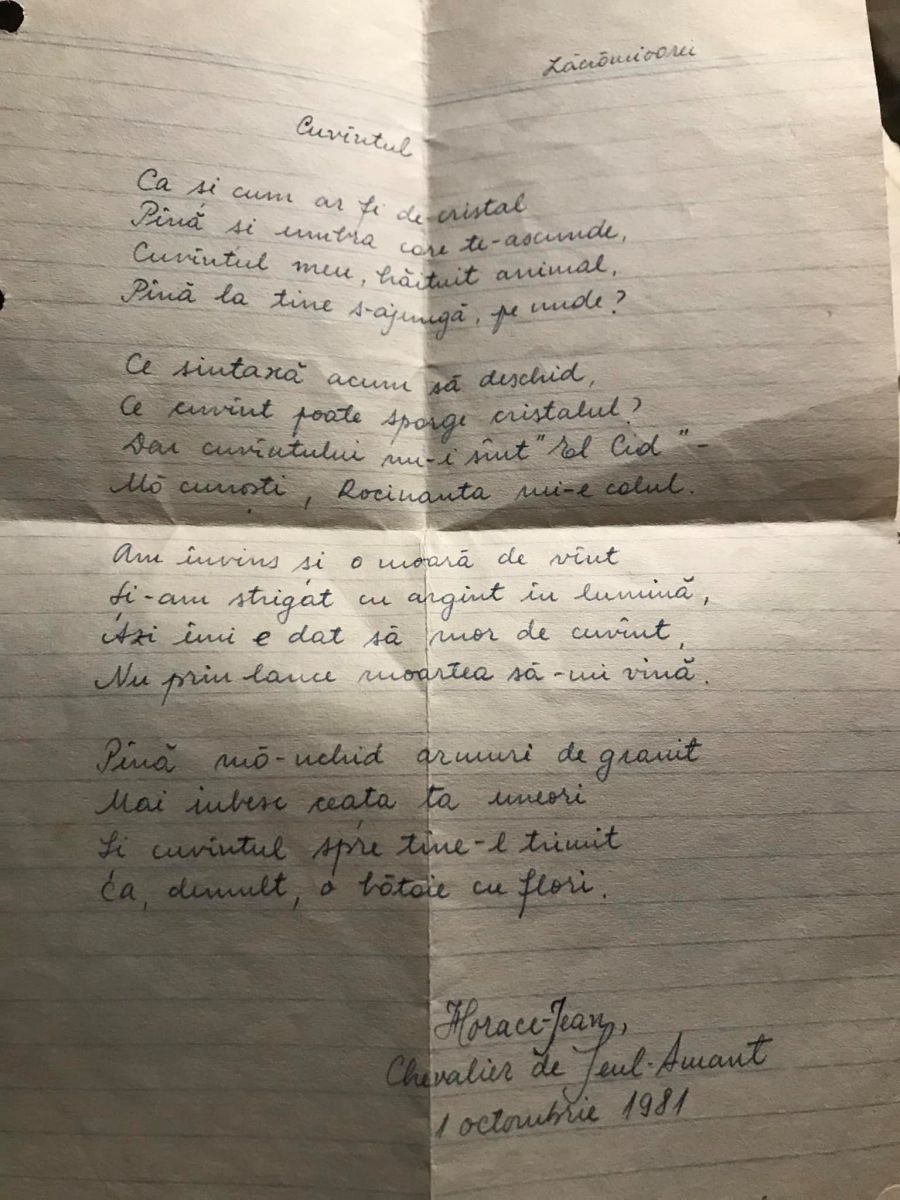 Lăcrămioarei
Cuvîntul
Ca și cum ar fi de cristal
Pînă și umbra care te-ascunde,
Cuvîntul meu, hăituit animal,
Pînă la tine s-ajungă, pe unde?
Ce sintaxă acum să deschid,
Ce cuvînt poate sparge cristalul?
Dar cuvîntului nu-i sînt "El Cid" -
Mă cunoști, Rocinanta mi-e calul.
Am învins și o moară de vînt
Și-am strigat cu argint în lumină,
Azi îmi e dat să mor de cuvînt,
Nu prin lance moartea să-mi vină.
Pînă mă-nchid armuri de granit
Mai iubesc ceața ta uneori
Și cuvîntul spre tine-l trimit
Ca, demult, o bătaie cu flori.
Horace-Jean,
Chevalier de Seul-Amant
1 octombrie 1981